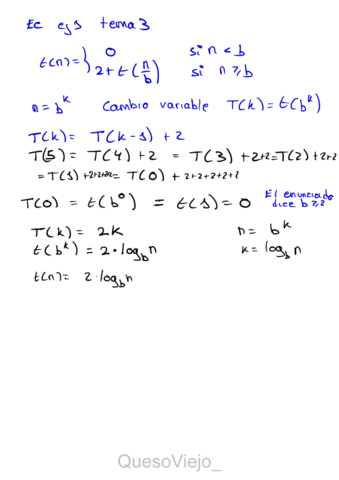 Ec ej 3 tema 3
t(n) = { 0 si n < b
2 + t(n/b) si n ≥ b
n = b^k Cambio variable T(k) = t(b^k)
T(k) = T(k-1) + 2
T(5) = T(4) + 2 = T(3) + 2+2 = T(2) + 2+2
= T(1) + 2+2+2+2 = T(0) + 2+2+2+2+2
T(0) = t(b^0) = t(1) = 0 El enunciado dice b ≥ 2
T(k) = 2k n = b^k
t(b^k) = 2·log_b n k = log_b n
t(n) = 2·log_b n
QuesoViejo_